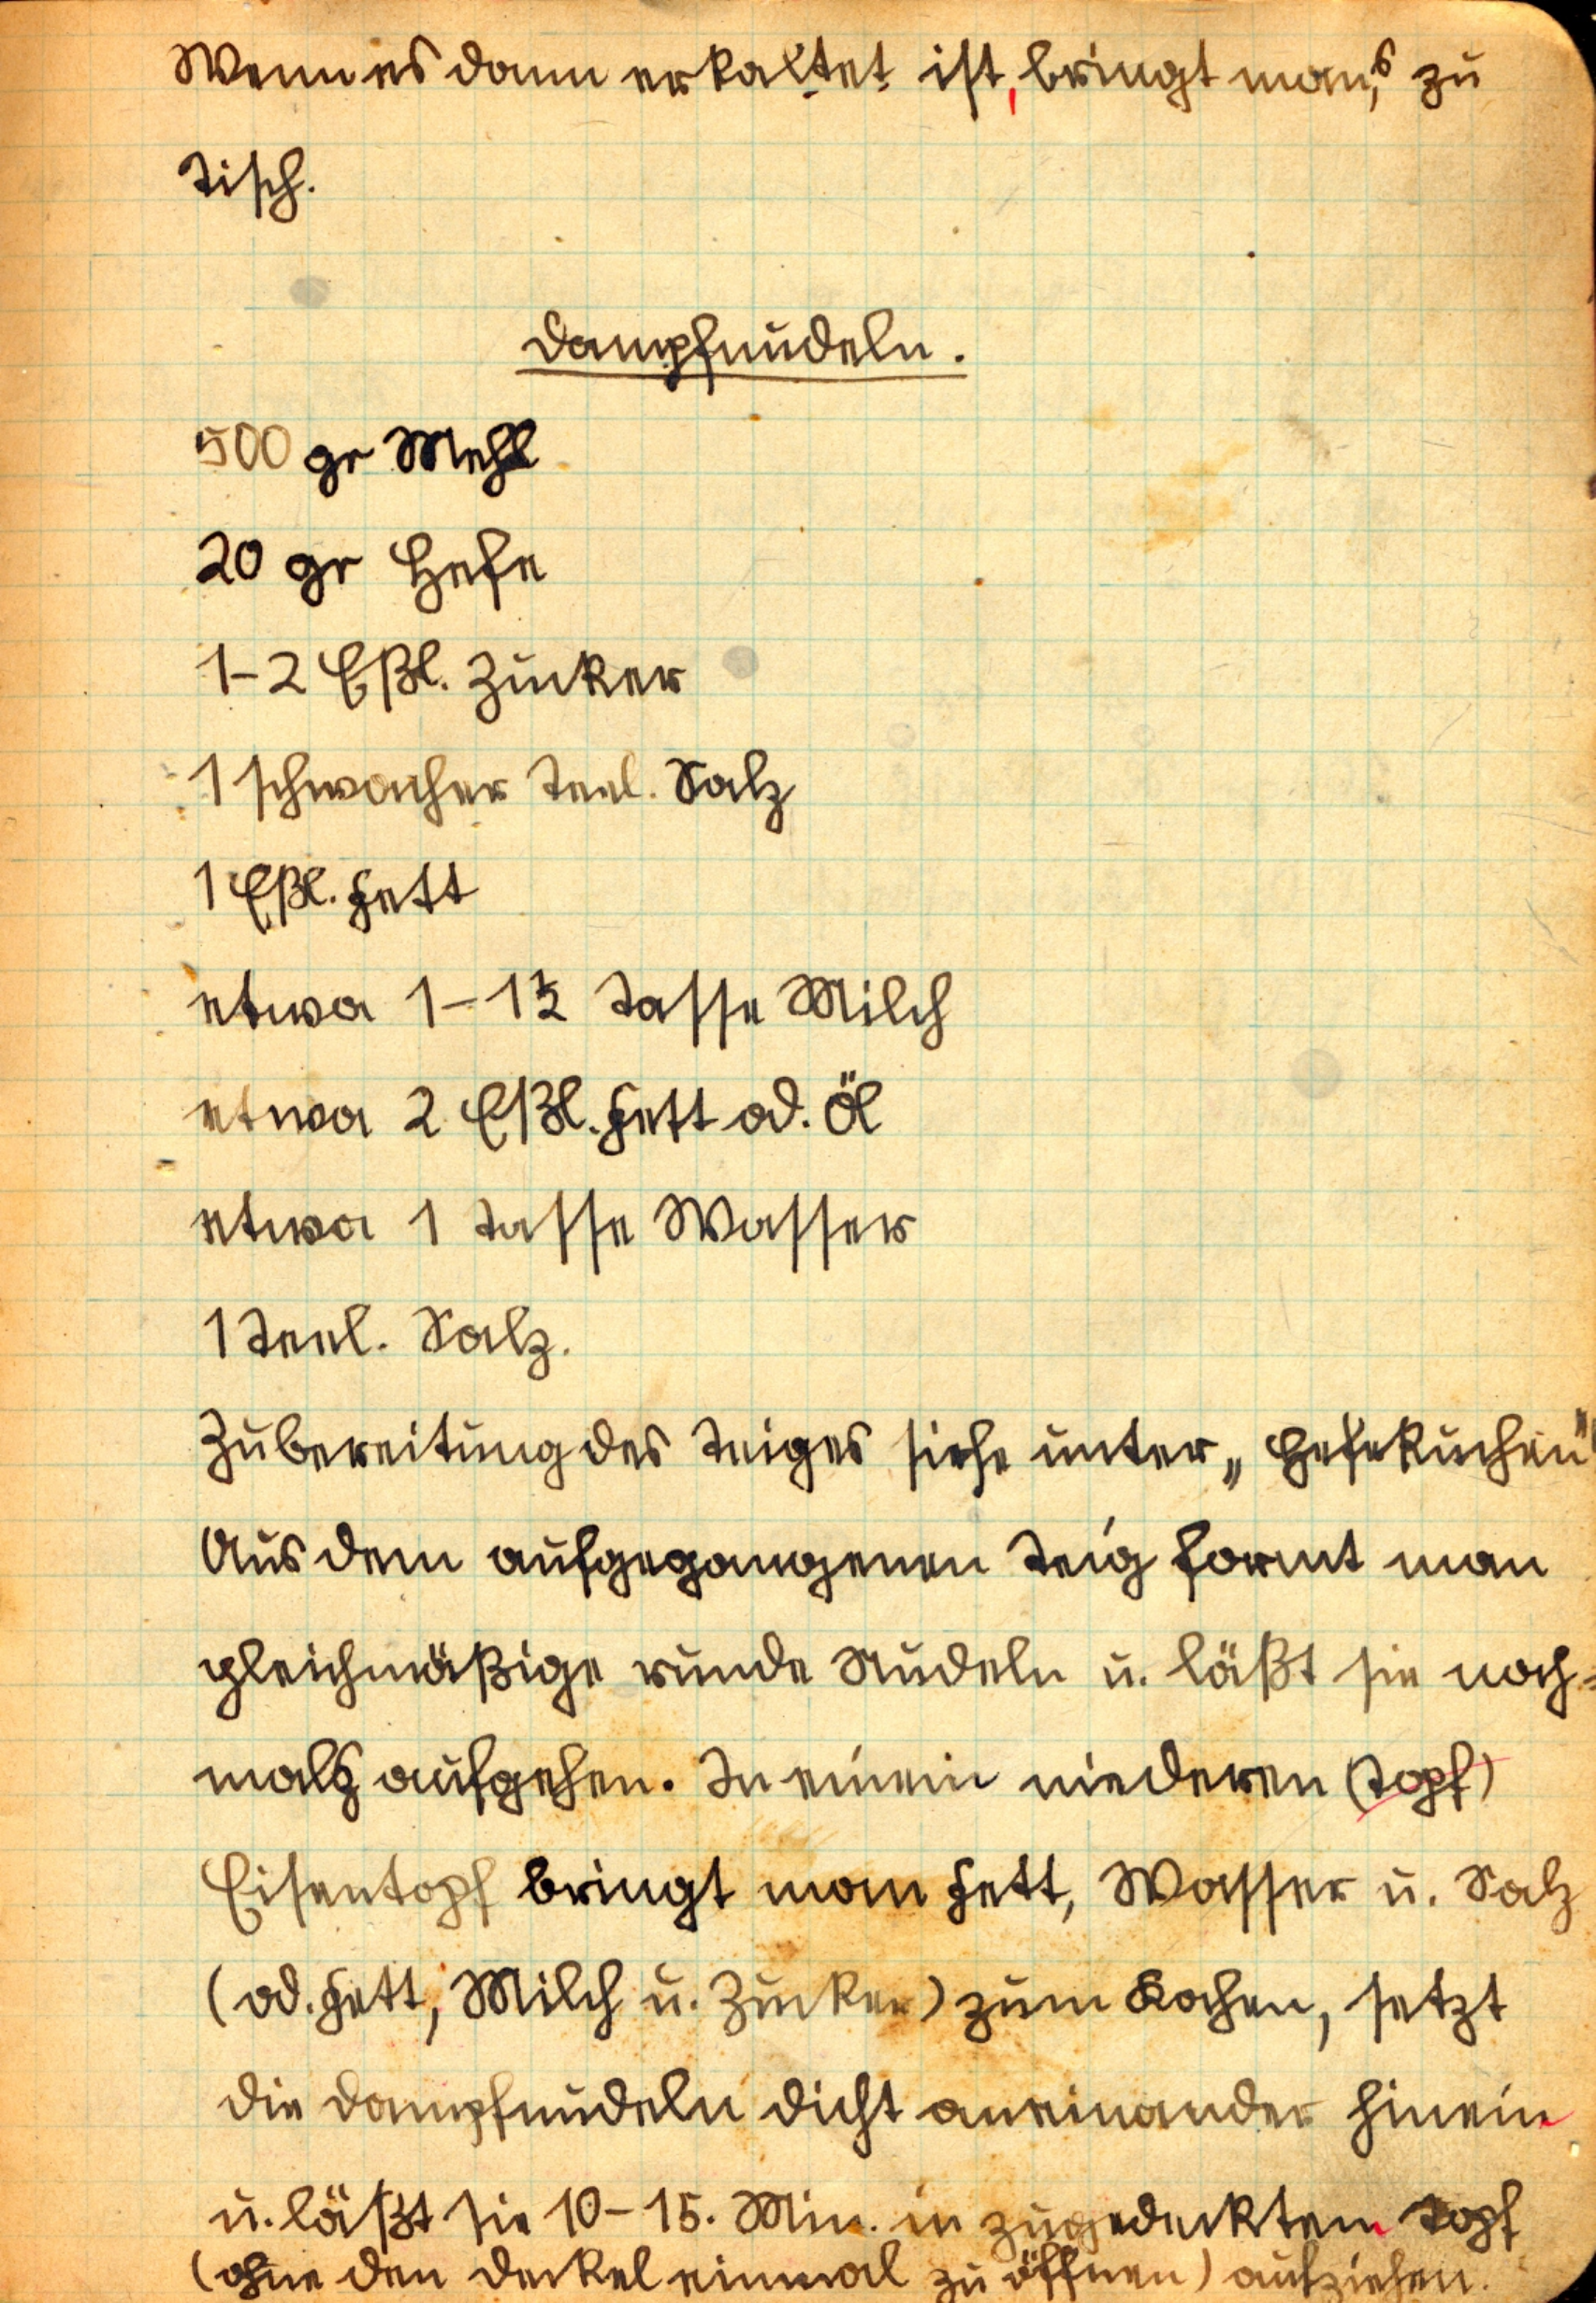 Wenn es dann erkaltet ist, bringt man's zu
Tisch.
Dampfnudeln.
500 gr Mehl
20 gr Hefe
1-2 Eßl. Zucker
1 schwacher Teel. Salz
1 Eßl. Fett
etwa 1-1½ Tasse Milch
etwa 2 Eßl. Fett od. Öl
etwa 1 Tasse Wasser
1 Teel. Salz.
Zubereitung des Teiges siehe unter „Hefekuchen"
Aus dem aufgegangenen Teig formt man
gleichmäßige runde Nudeln u. läßt sie noch=
mals aufgehen. In einem niederen (Topf)
Eisentopf bringt man Fett, Wasser u. Salz
(od. Fett, Milch u. Zucker) zum Kochen, setzt
die Dampfnudeln dicht aneinander hinein
u. läßt sie 10-15. Min. in zugedecktem Topf
(ohne den Deckel einmal zu öffnen) aufziehen.